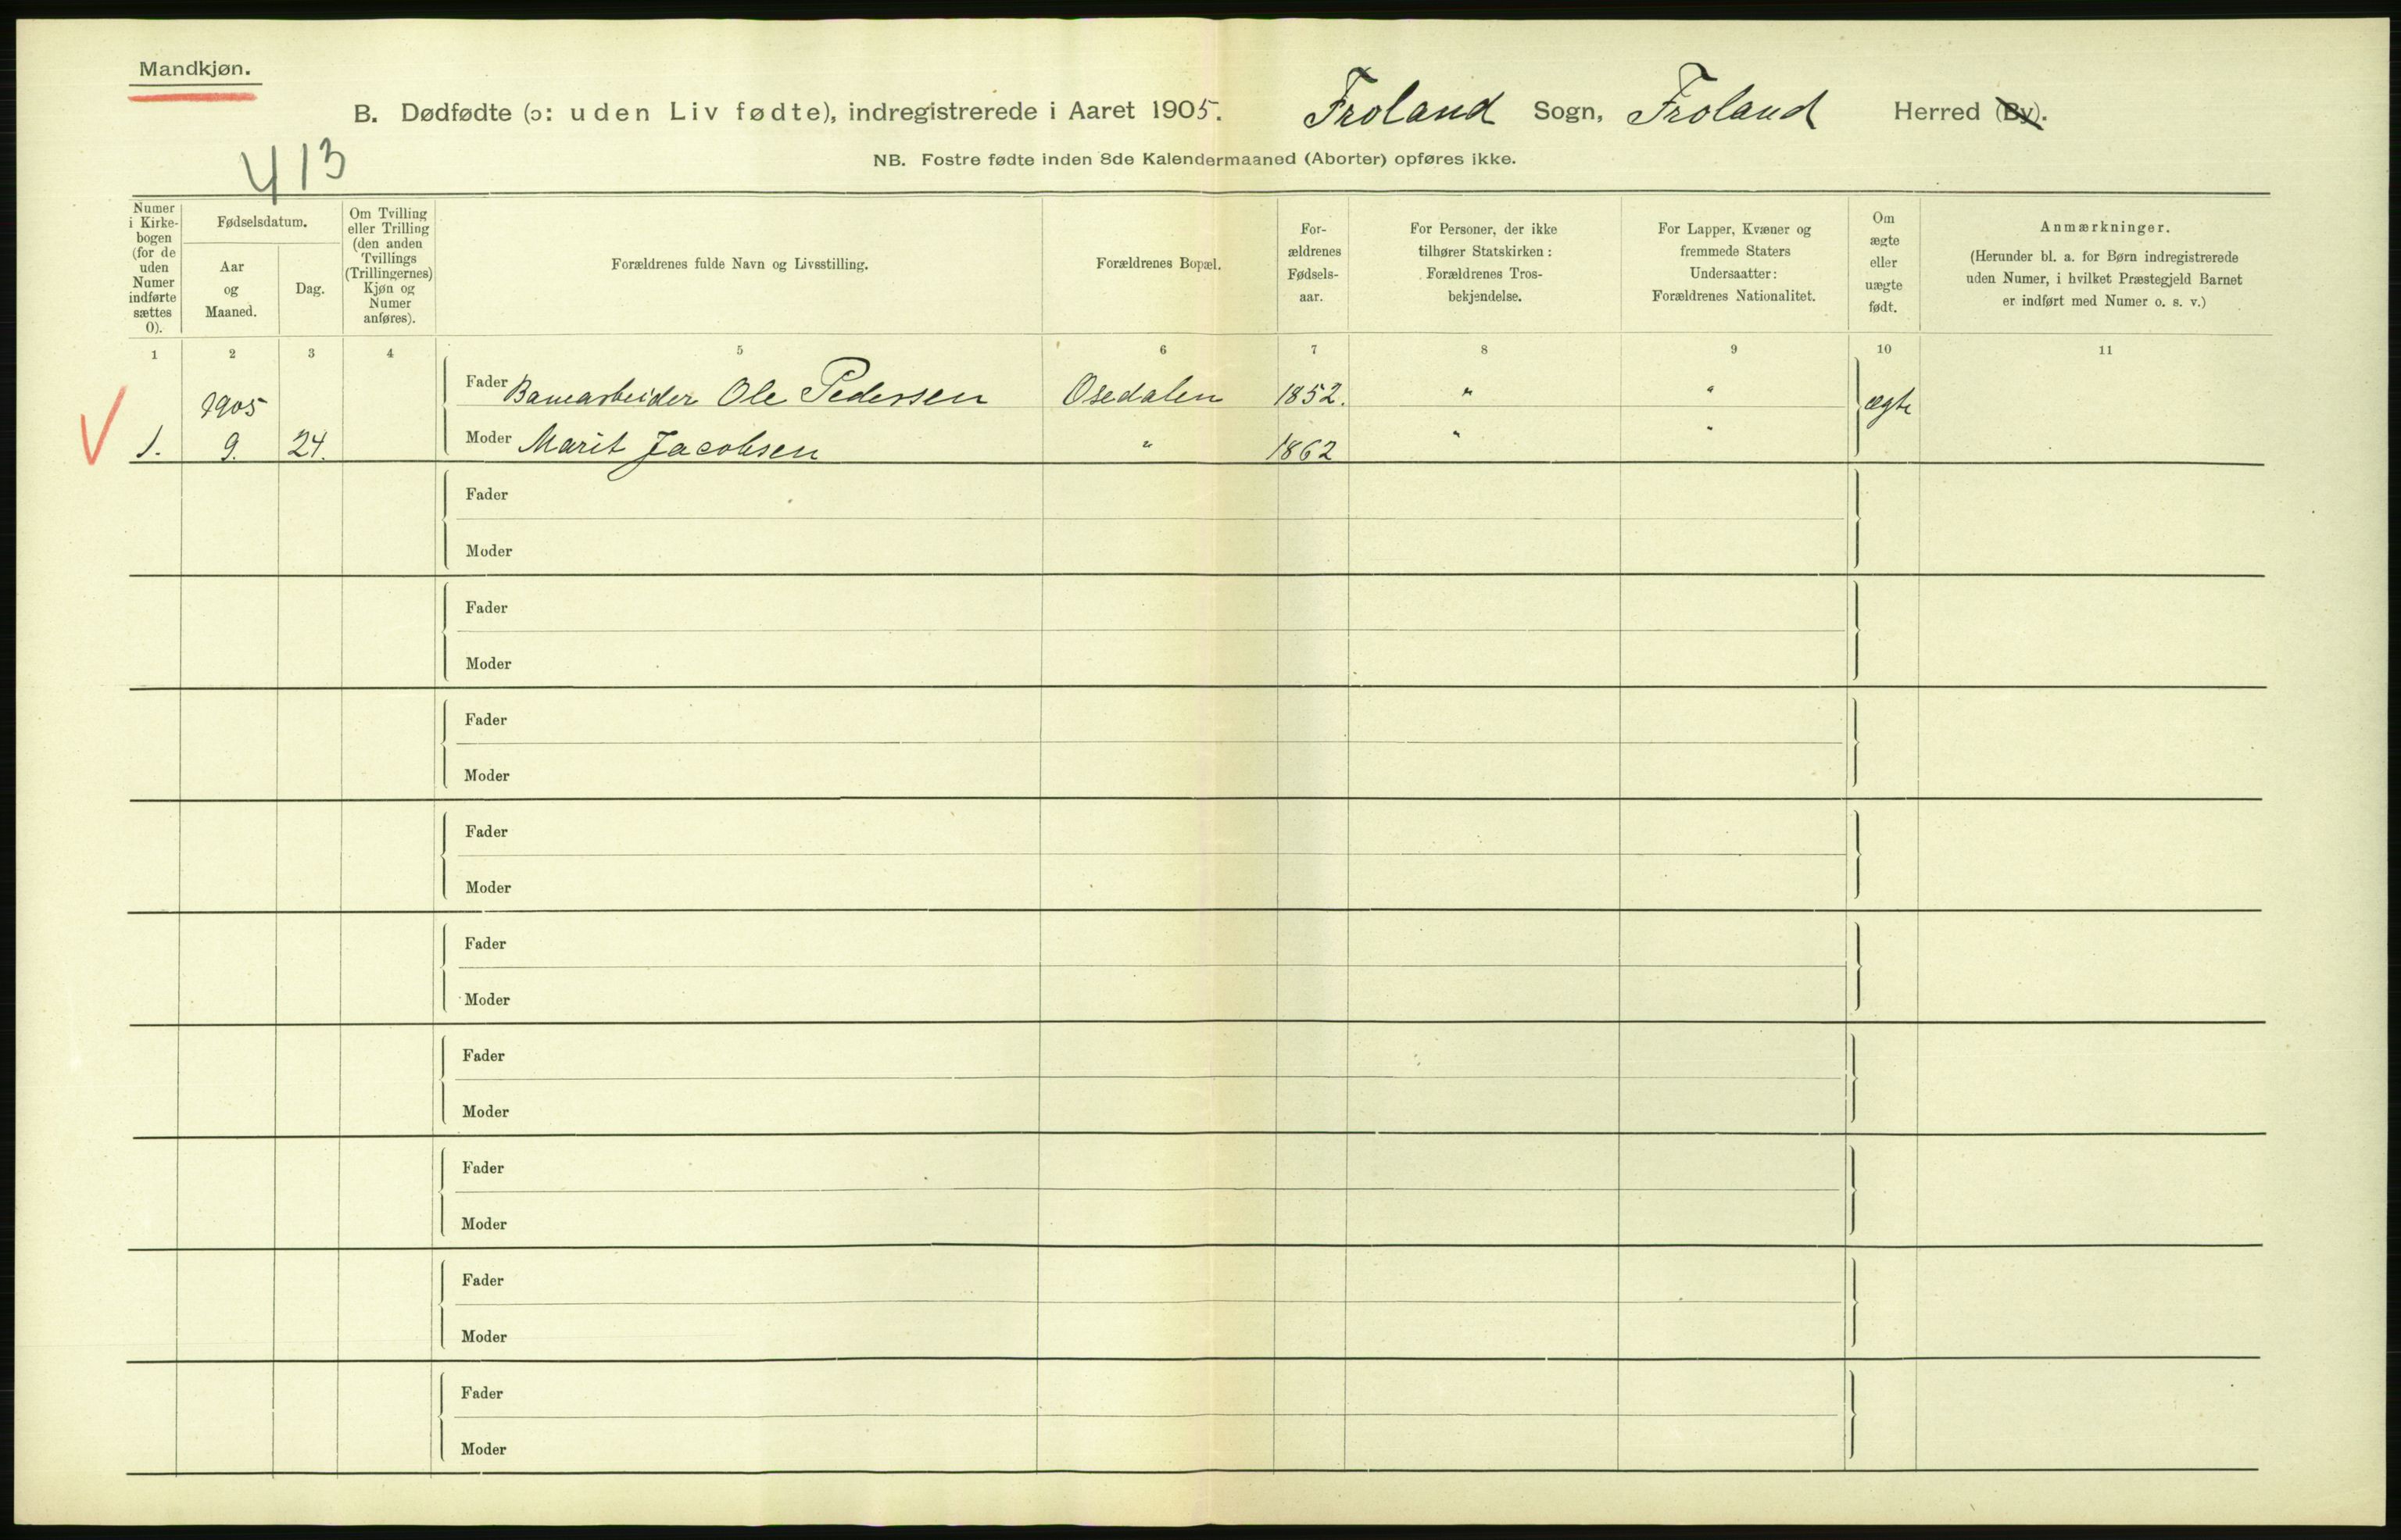 Mandkjøn.
B. Dødfødte (ɔ: uden Liv fødte), indregistrerede i Aaret 1905. Froland Sogn, Froland Herred (By).
413
NB. Fostre fødte inden 8de Kalendermaaned (Aborter) opføres ikke.
Numer
i Kirke-
bogen
(for de
uden
Numer
indførte
sættes
0).
Fødselsdatum.
Aar
og
Maaned.
Dag.
Om Tvilling
eller Trilling
(den anden
Tvillings
(Trillingernes)
Kjøn og
Numer
anføres).
Forældrenes fulde Navn og Livsstilling.
Forældrenes Bopæl.
For-
ældrenes
Fødsels-
aar.
For Personer, der ikke
tilhører Statskirken:
Forældrenes Tros-
bekjendelse.
For Lapper, Kvæner og
fremmede Staters
Undersaatter:
Forældrenes Nationalitet.
Om
ægte
eller
uægte
født.
Anmærkninger.
(Herunder bl. a. for Børn indregistrerede
uden Numer, i hvilket Præstegjeld Barnet
er indført med Numer o. s. v.)
1 2 3 4 5 6 7 8 9 10 11
1905
Fader Banearbeider Ole Pedersen Osedalen 1852. " "
ægte
V 1. 9. 24. Moder Marit Jacobsen " 1862 " "
Fader
Moder
Fader
Moder
Fader
Moder
Fader
Moder
Fader
Moder
Fader
Moder
Fader
Moder
Fader
Moder
Fader
Moder